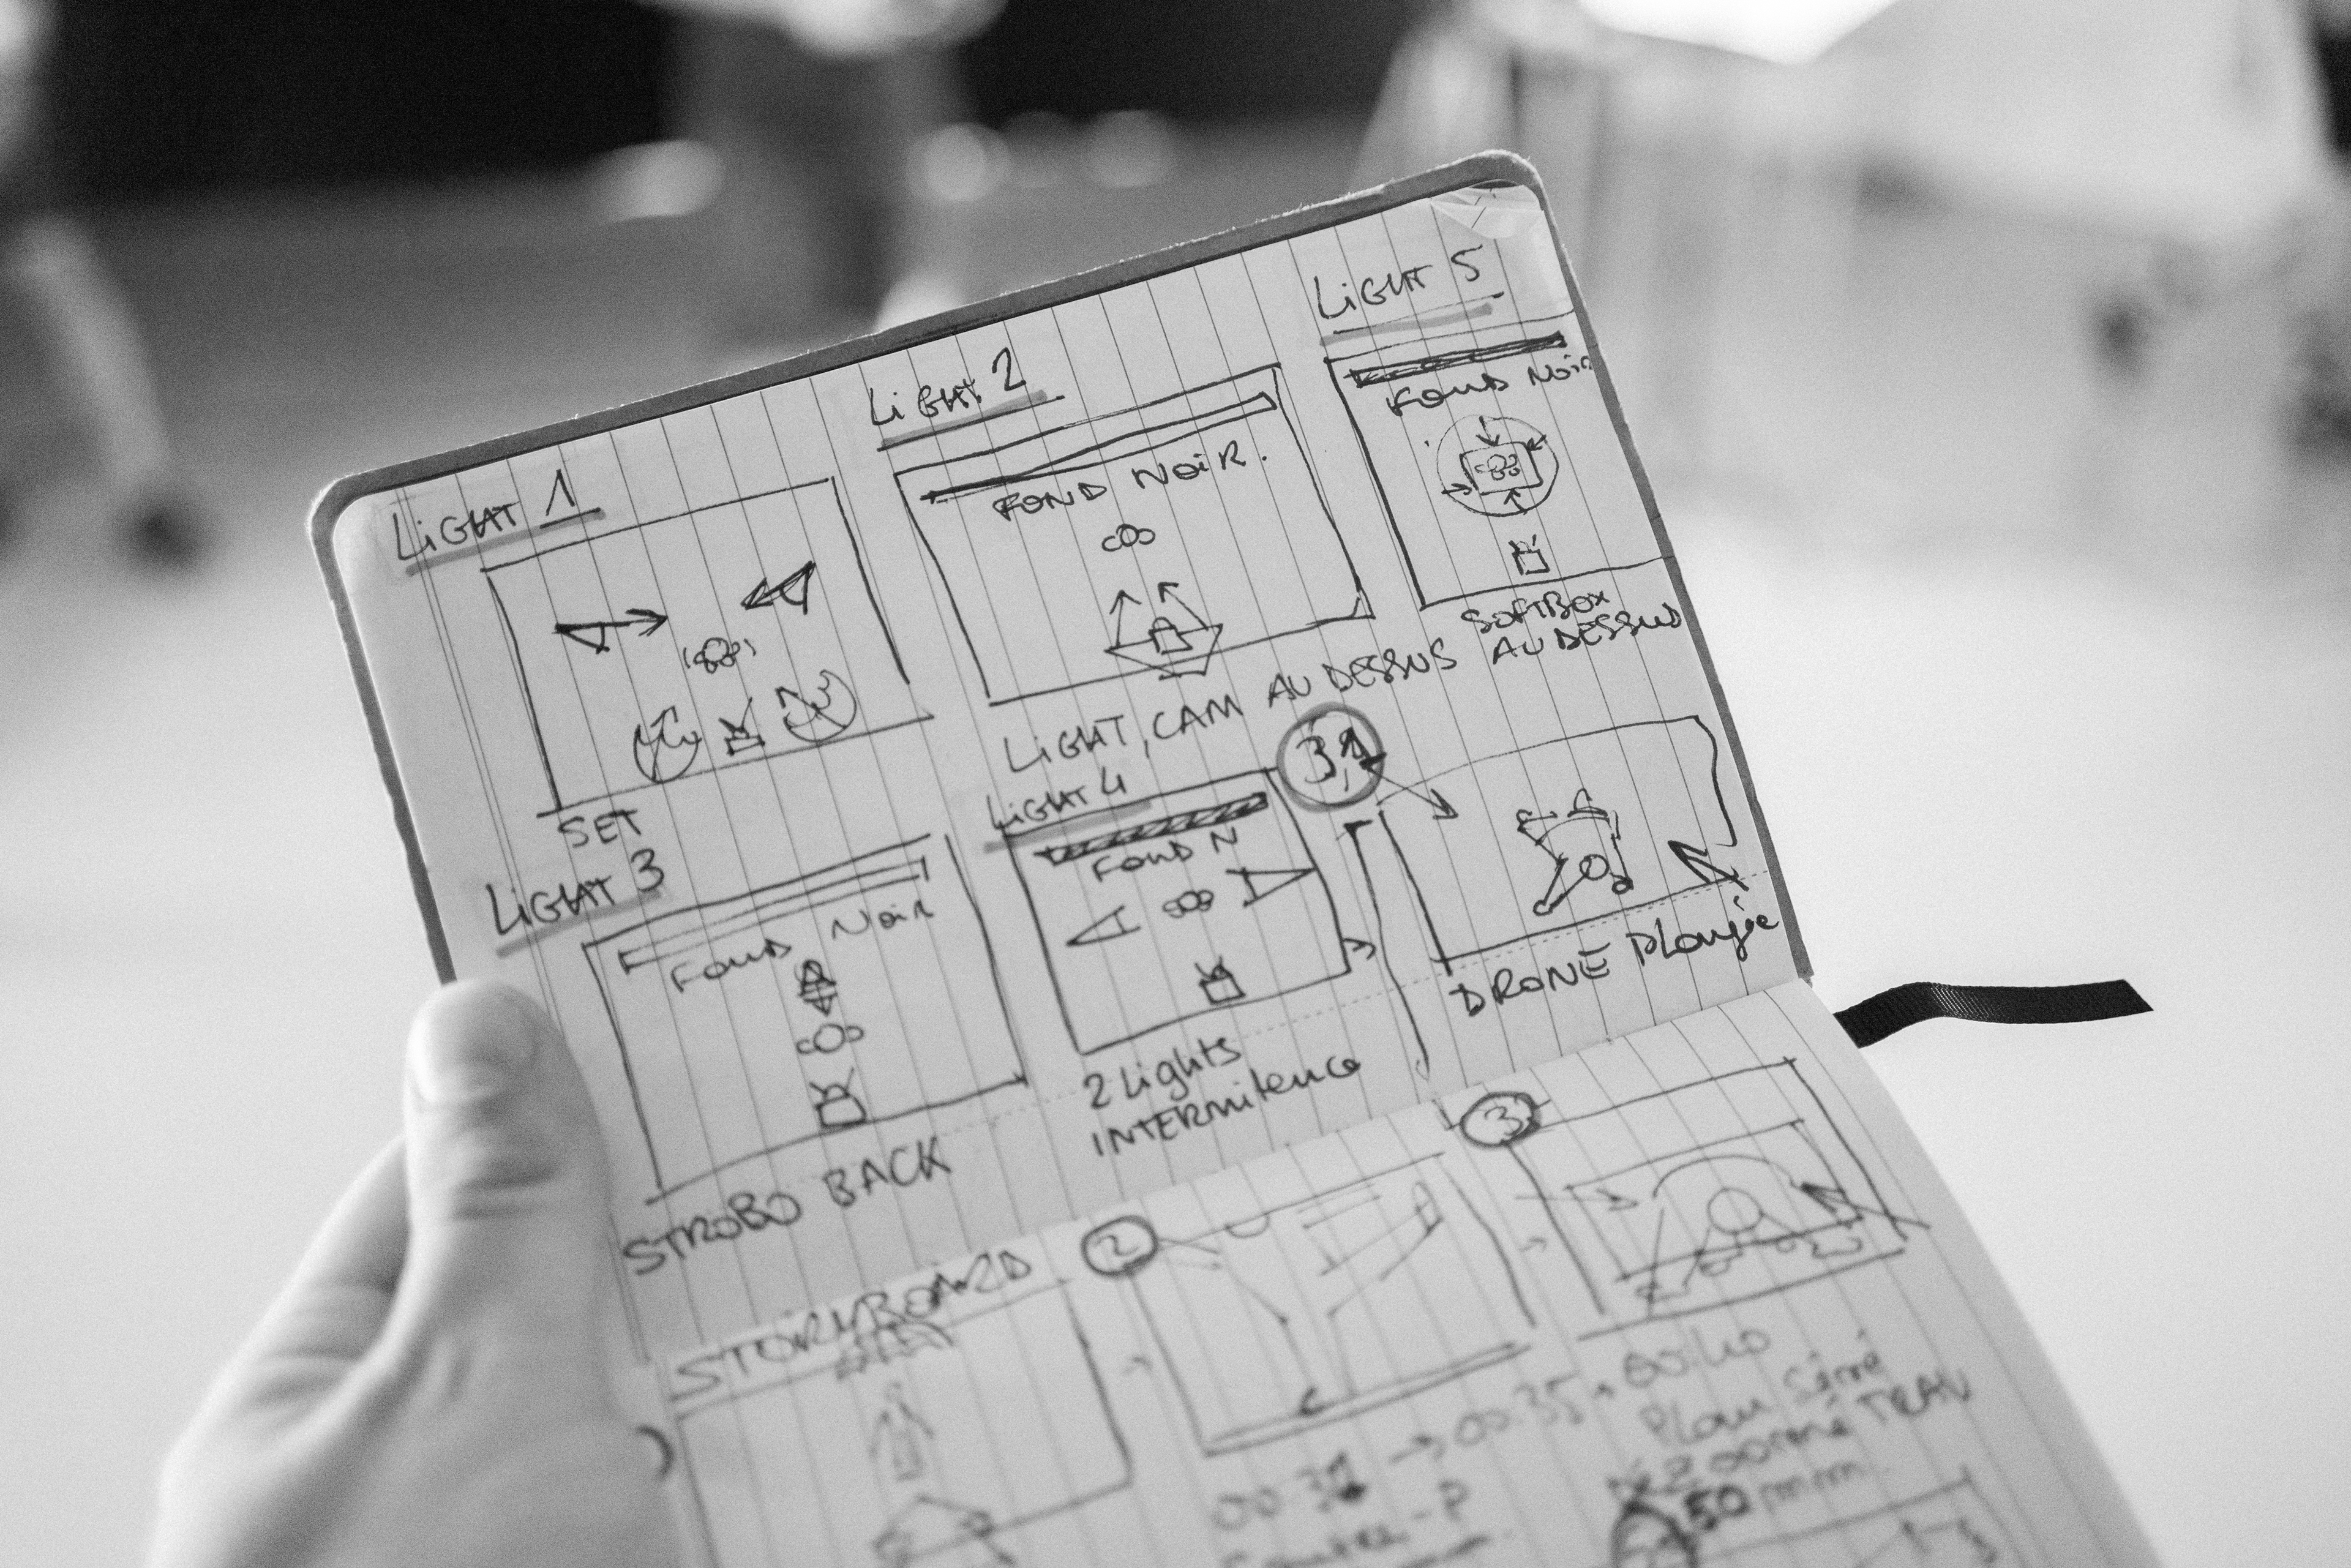 LiGHT 1
SET
LiGHT 2
FOND NOIR.
LIGHT, CAM AU DESSUS
LiGHT 5
FOND NOIR
SOFTBOX
AU DESSUS
LiGHT 3
FOND NOIR
STROBO BACK
LiGHT 4
FOND N
2 Lights
INTERMitence
3,1
DRONE Plongée
STORYBOARD
2
00:35
3
Plan Serré
TRAV
50 mm